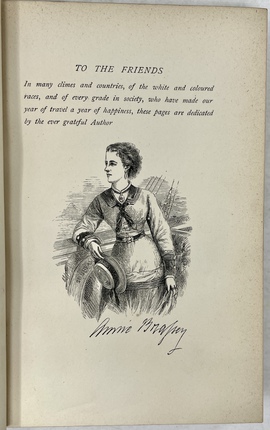 TO THE FRIENDS
In many climes and countries, of the white and coloured
races, and of every grade in society, who have made our
year of travel a year of happiness, these pages are dedicated
by the ever grateful Author
Annie Brassey